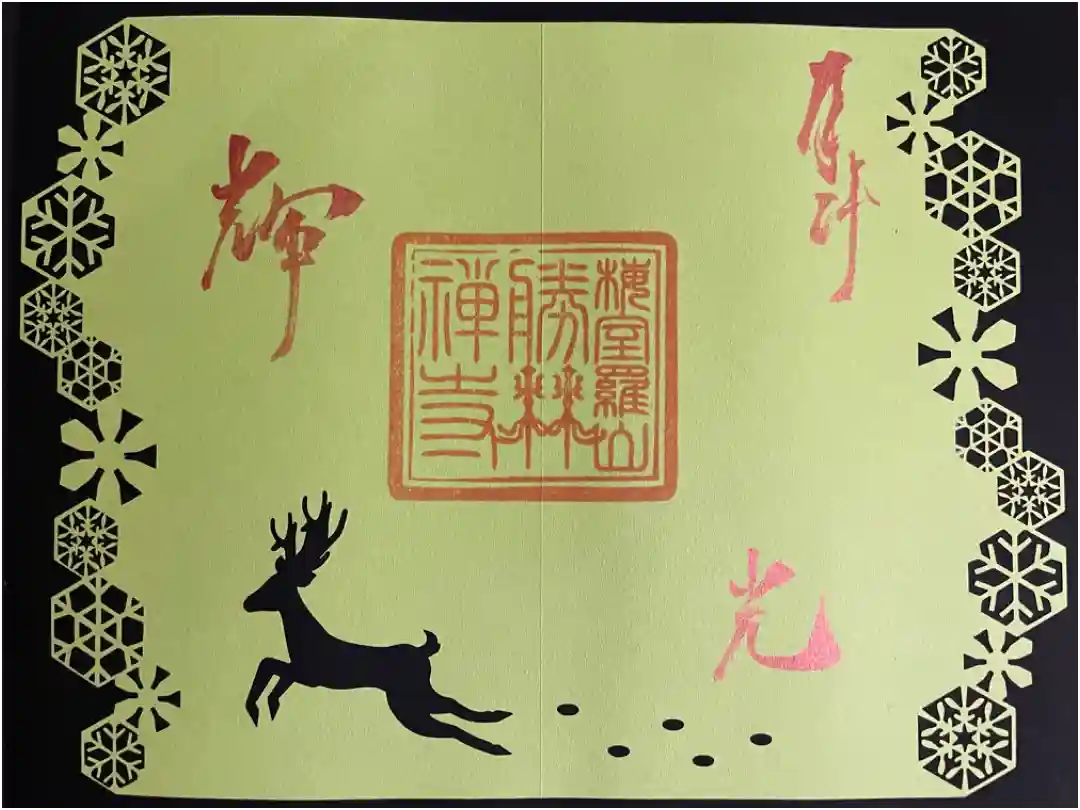 斗
光
輝
羅山
勝林
禅寺